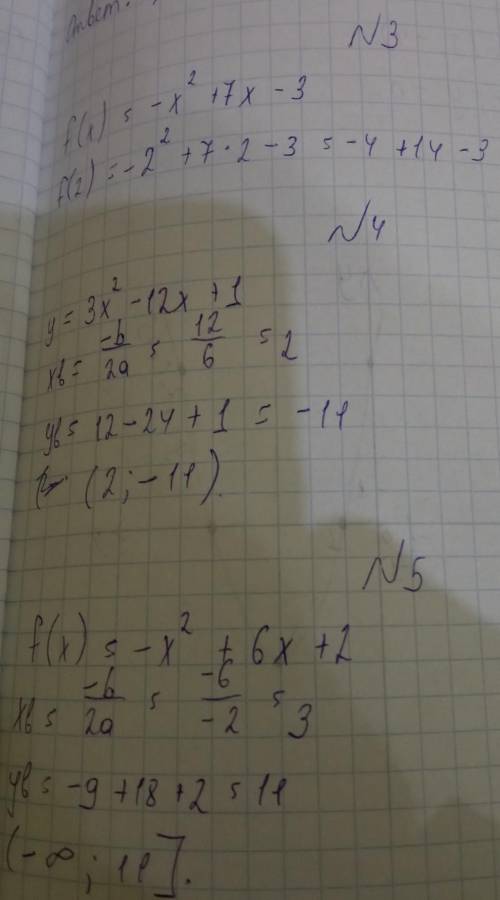 Ответ.
N3
f(x) = -x² + 7x - 3
f(2) = -2² + 7·2 - 3 = -4 + 14 - 3
N4
y = 3x² - 12x + 1
xв = -b/2a = 12/6 = 2
yв = 12 - 24 + 1 = -11
(2; -11).
N5
f(x) = -x² + 6x + 2
xв = -b/2a = -6/-2 = 3
yв = -9 + 18 + 2 = 11
(-∞; 11].